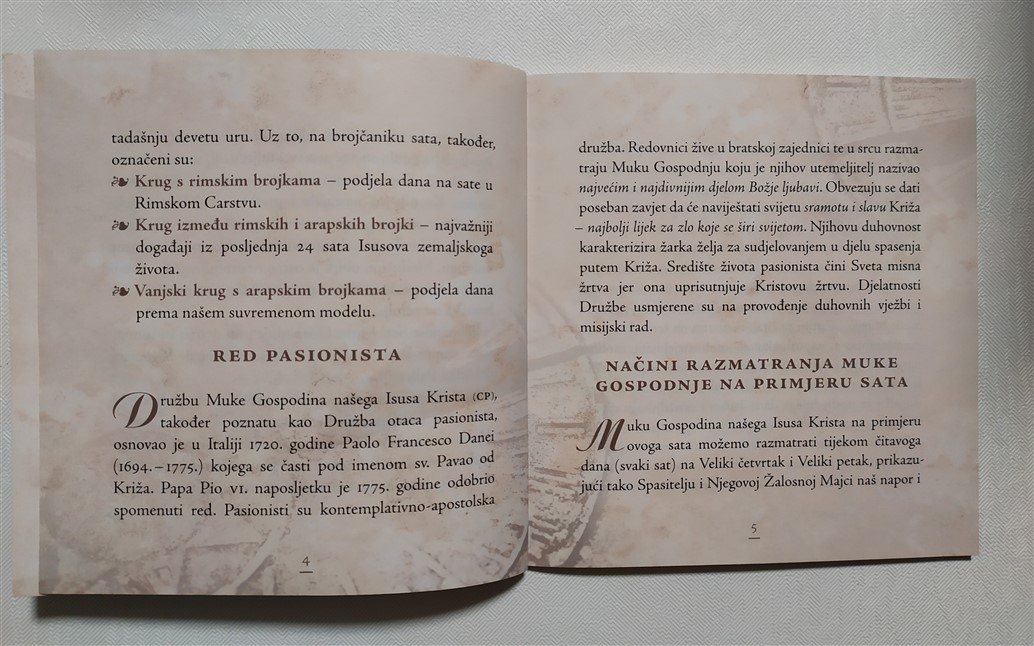 tadašnju devetu uru. Uz to, na brojčaniku sata, također,
označeni su:
❧ Krug s rimskim brojkama – podjela dana na sate u
Rimskom Carstvu.
❧ Krug između rimskih i arapskih brojki – najvažniji
događaji iz posljednja 24 sata Isusova zemaljskoga
života.
❧ Vanjski krug s arapskim brojkama – podjela dana
prema našem suvremenom modelu.
RED PASIONISTA
Družbu Muke Gospodina našega Isusa Krista (CP),
također poznatu kao Družba otaca pasionista,
osnovao je u Italiji 1720. godine Paolo Francesco Danei
(1694. – 1775.) kojega se časti pod imenom sv. Pavao od
Križa. Papa Pio VI. naposljetku je 1775. godine odobrio
spomenuti red. Pasionisti su kontemplativno-apostolska
4
družba. Redovnici žive u bratskoj zajednici te u srcu razma-
traju Muku Gospodnju koju je njihov utemeljitelj nazivao
najvećim i najdivnijim djelom Božje ljubavi. Obvezuju se dati
poseban zavjet da će naviještati svijetu sramotu i slavu Križa
– najbolji lijek za zlo koje se širi svijetom. Njihovu duhovnost
karakterizira žarka želja za sudjelovanjem u djelu spasenja
putem Križa. Središte života pasionista čini Sveta misna
žrtva jer ona uprisutnjuje Kristovu žrtvu. Djelatnosti
Družbe usmjerene su na provođenje duhovnih vježbi i
misijski rad.
NAČINI RAZMATRANJA MUKE
GOSPODNJE NA PRIMJERU SATA
Muku Gospodina našega Isusa Krista na primjeru
ovoga sata možemo razmatrati tijekom čitavoga
dana (svaki sat) na Veliki četvrtak i Veliki petak, prikazu-
jući tako Spasitelju i Njegovoj Žalosnoj Majci naš napor i
5